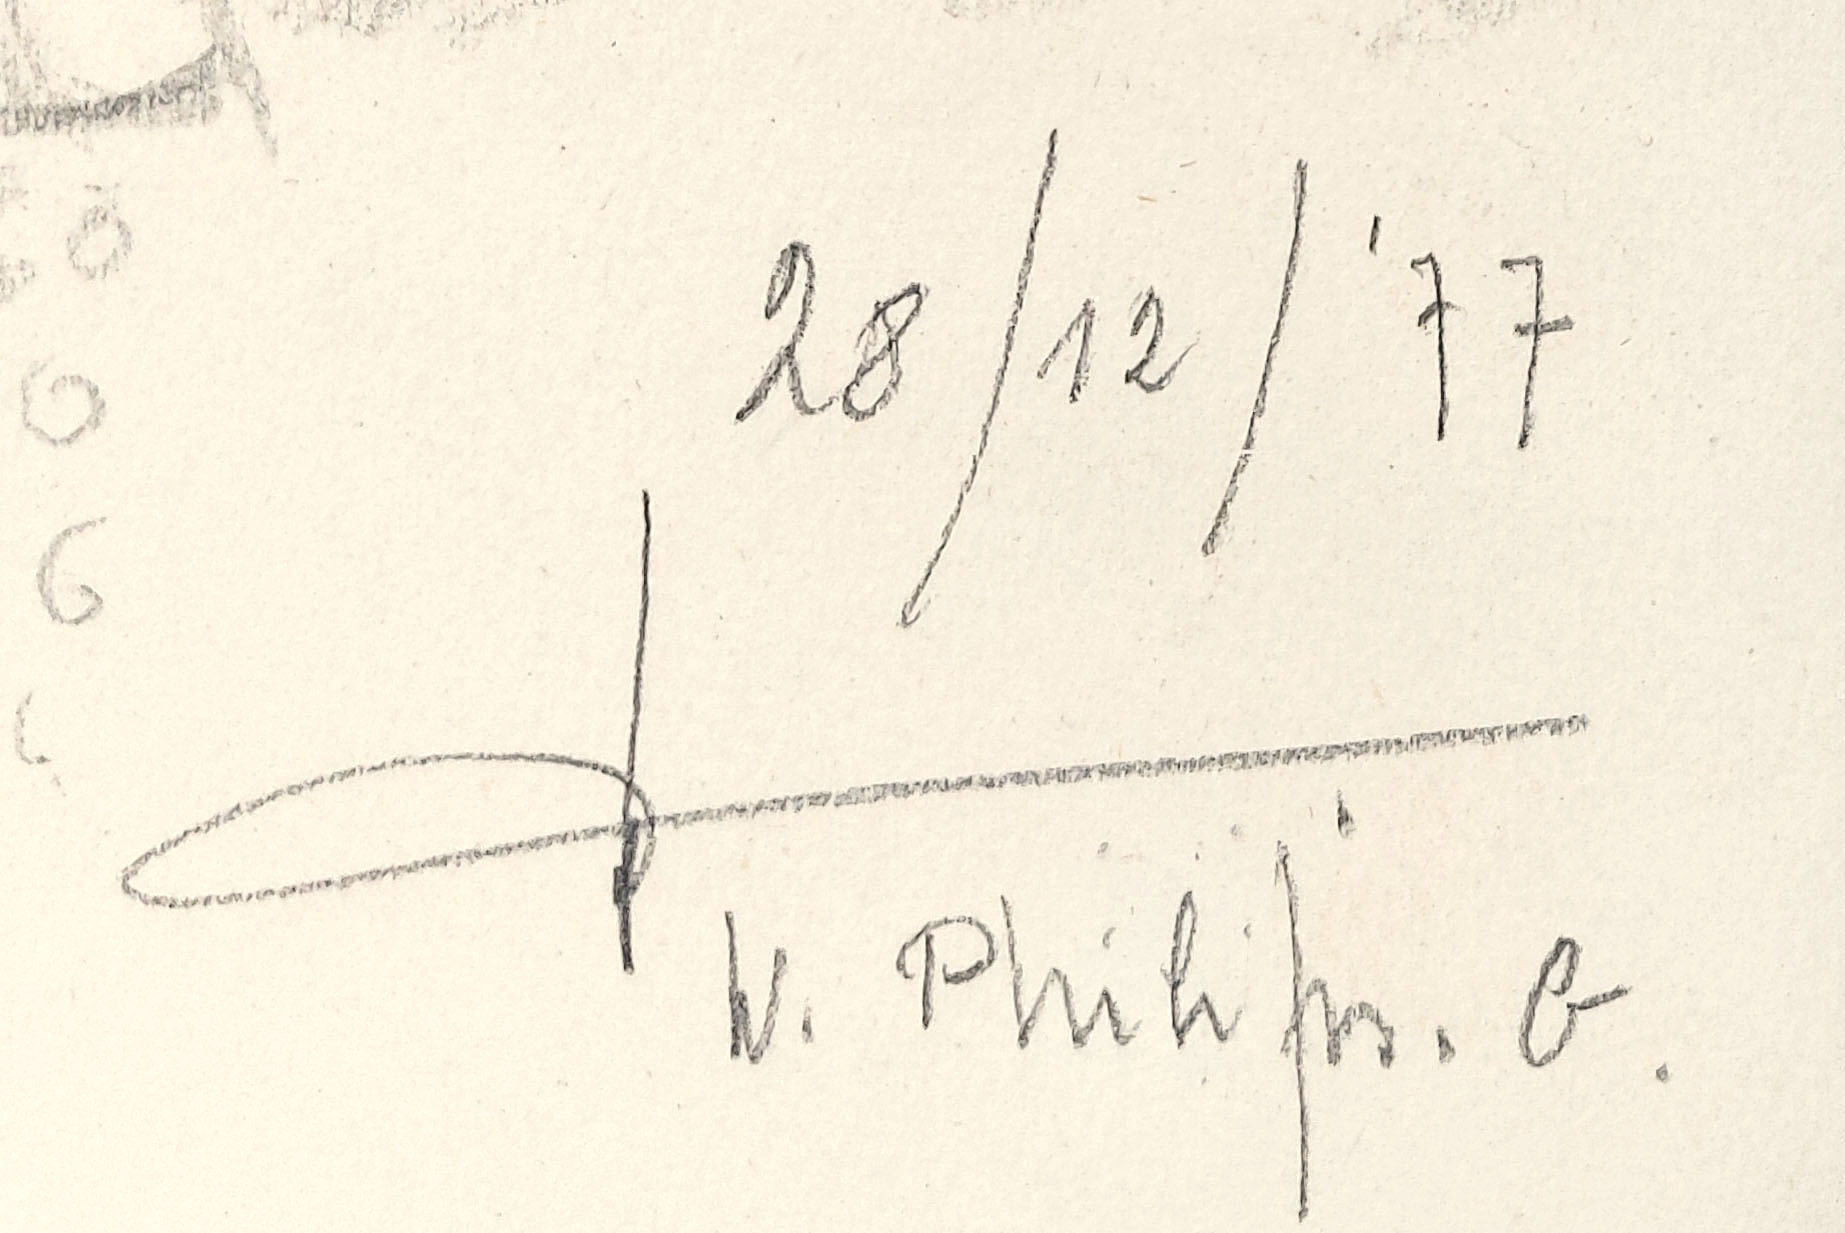 28/12/'77
W. Philips. G.